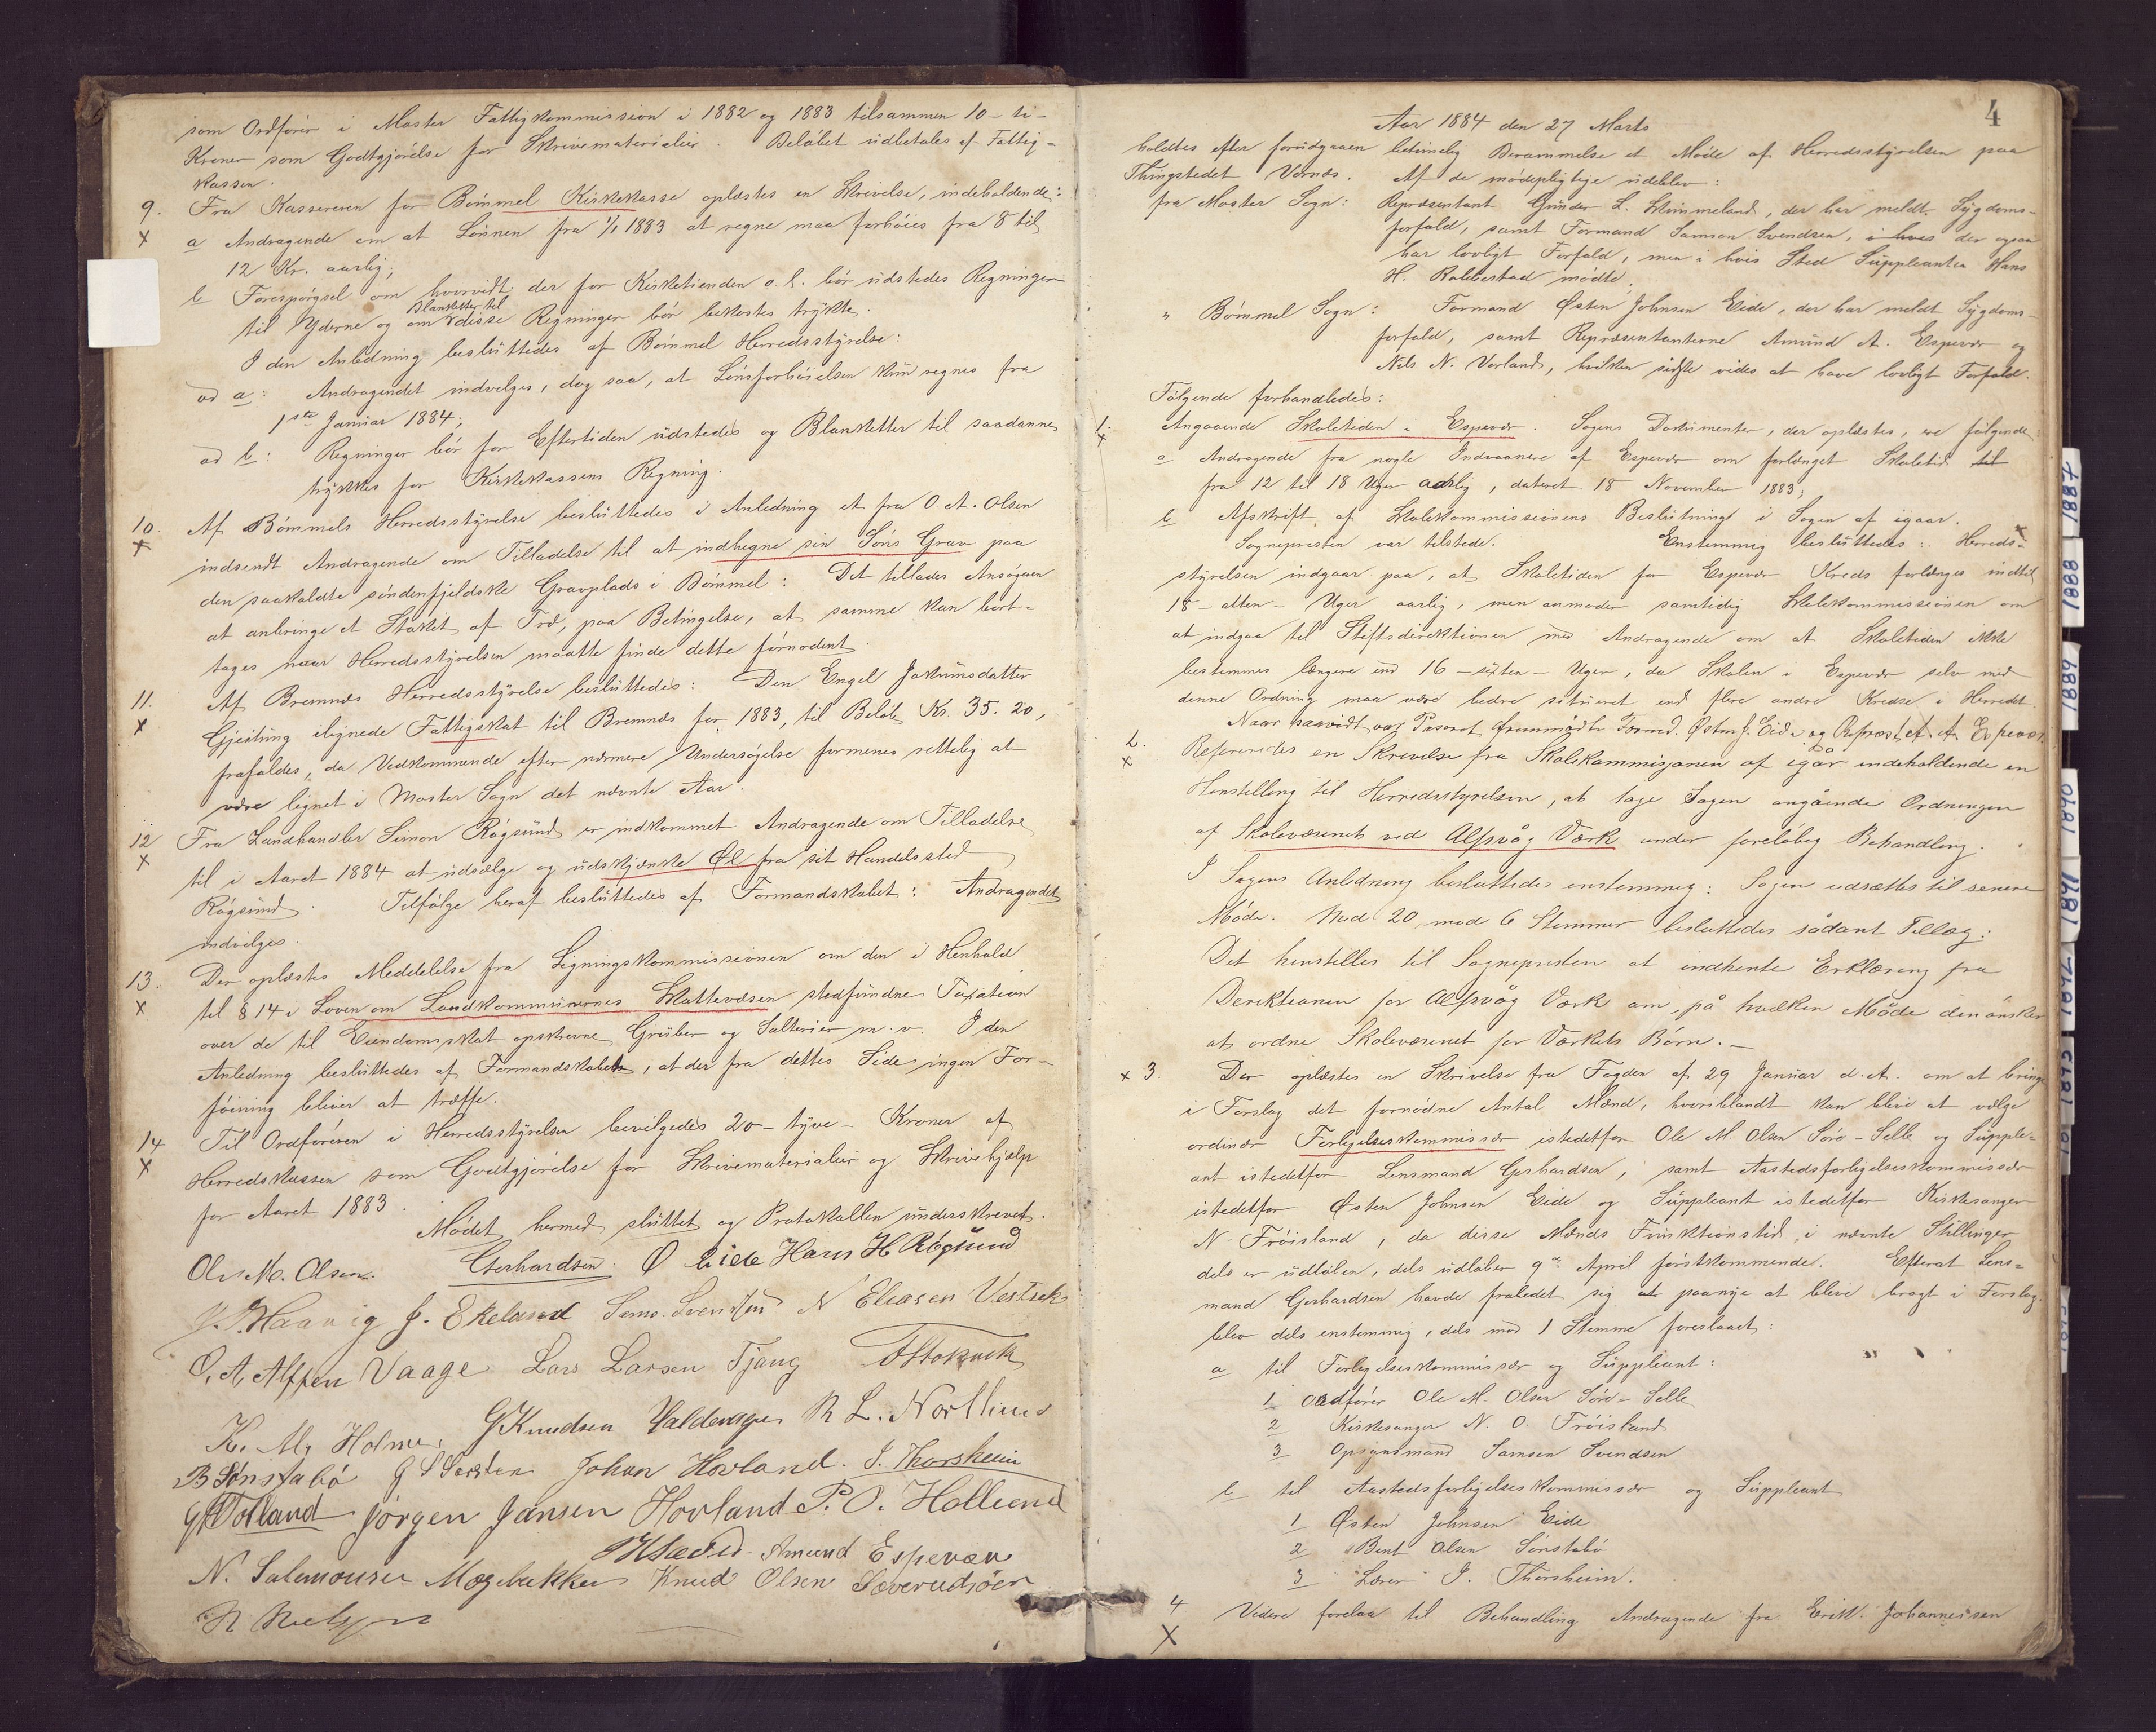 som Ordfører i Moster Fattigkommission i 1882 og 1883 tilsammen 10 - ti -
Kroner som Godtgjørelse for Skrivematerialier. Beløbet udbetales af Fattig=
kassen.
9. Fra Kassereren for Bømmel Kirkekasse oplæstes en Skrivelse, indeholdende:
x a Andragende om at Lønnen fra 1/1 1883 at regne maa forhøies fra 8 til
12 Kr. aarlig;
b Forespørgsel om hvorvidt der for Kirketienden o. l. bør udstedes Regninger
Blanketter til
til Yderne og om disse Regninger bør bekostes trykte.
I den Anledning besluttedes af Bømmel Herredsstyrelse:
ad a: Andragendet indvilges, dog saa, at Lønsforhøielsen kun regnes fra
1ste Januar 1884;
ad b: Regninger bør for Eftertiden udstedes og Blanketter til saadanne
trykkes for Kirkekassens Regning.
10. Af Bømmels Herredsstyrelse besluttedes i Anledning et fra O. A. Olsen
x indsendt Andragende om Tilladelse til at indhegne sin Søns Grav paa
den saakaldte søndenfjeldske Gravplads i Bømmel: Det tillades Ansøgeren
at anbringe et Stakit af Træ, paa Betingelse, at samme kan bort=
tages naar Herredsstyrelsen maatte finde dette fornødent.
11. Af Bremnes Herredsstyrelse besluttedes: Den Engel Jakumsdatter
x Gjeitung ilignede Fattigskat til Bremnes for 1883, til Beløb Kr. 35. 20,
frafaldes, da Vedkommende efter nærmere Undersøgelse formenes rettelig at
være lignet i Moster Sogn det nævnte Aar.
12 Fra Landhandler Simon Røgsund er indkommet Andragende om Tilladelse
x til i Aaret 1884 at udsælge og udskjænke Øl fra sit Handelssted
Røgsund. Tilfølge heraf besluttedes af Formandskabet: Andragendet
indvilges.
13. Der oplæstes Meddelelse fra Ligningskommissionen om den i Henhold
x til § 14 i Loven om Landkommunernes Skattevæsen stedfundne Taxation
over de til Eiendomsskat opskrevne Gruber og Salterier m. v. I den
Anledning besluttedes af Formandskabet, at der fra dettes Side ingen For=
føining bliver at træffe.
14 Til Ordføreren i Herredsstyrelsen bevilgedes 20 - tyve - Kroner af
x Herredskassen som Godtgjørelse for Skrivematerialier og Skrivehjælp
for Aaret 1883.
Mødet hermed sluttet og Protokollen underskrevet.
Ole M. Olsen. Gerhardsen. Ø Eide Hans H Røgsund
Haavig J. Ekeland Sams. Svendsen N Eliasen Vestvik
O. A. Alfsen Vaage Lars Larsen Tjang
K. M. Holme. G Knudsen Valdersage R L. Nortlund
B Sønstabø G Johan Hovland. J. Thorsheim
Jørgen Jansen Hovland P. O. Hollund
Amund Espevær
N. Salamonsen Mogebakken Knud Olsen
N Nielsen
4
Aar 1884 den 27 Marts
holdtes efter forudgaaen betimelig Berammelse et Møde af Herredsstyrelsen paa
Thingstedet Vernæs. Af de mødepligtige udeblev:
fra Moster Sogn: Repræsentant Gunder L. Skimmeland, der har meldt Sygdoms-
forfald, samt Formand Samson Svendsen, i hvis der ogsaa
har lovligt Forfald, men i hvis Sted Suppleanten Hans
H. Rolvestad mødte;
" Bømmel Sogn: Formand Østen Johnsen Eide, der har meldt Sygdoms-
forfald, samt Repræsentanterne Amund A. Espevær og
Nils N. Vorland, hvilken sidste vides at have lovligt Forfald.
Følgende forhandledes:
1. Angaaende Skoletiden i Espevær. Sagens Dokumenter, der oplæstes, ere følgende:
x a Andragende fra nogle Indvaanere af Espevær om forlænget Skoletid til
fra 12 til 18 Uger aarlig, dateret 18 November 1883;
b Afskrift af Skolekommissionens Beslutning i Sagen af igaar.
Sognepresten var tilstede. Enstemmig besluttedes: Herreds=
styrelsen indgaar paa, at Skoletiden for Espevær Kreds forlænges indtil
18 - atten - Uger aarlig, men anmoder samtidig Skolekommissionen om
at indgaa til Stiftsdirektionen med Andragende om at Skoletiden ikke
bestemmes længere end 16 - sexten - Uger, da Skolen i Espevær selv med
denne Ordning maa være bedre situeret end flere andre Kredse i Herredet.
Naar saavidt var Passeret fremmødte Formd. Østen J. Eide og Repræst. A. A. Espevær.
2. Refereredes en Skrivelse fra Skolekommisjonen af igår indeholdende en
x Henstilling til Herredsstyrelsen, at tage Sagen angående Ordningen
af Skolevæsenet ved Alfsvåg Værk under foreløbig Behandling.
I Sagens Anledning besluttedes enstemmig: Sagen udsættes til senere
Møde. Med 20 mod 6 Stemmer besluttedes sådant Tillæg:
Det henstilles til Sognepresten at indhente Erklæring fra
Direktionen for Alfsvåg Værk om, på hvilken Måde den ønsker
at ordne Skolevæsenet for Værkets Børn. -
x 3. Der oplæstes en Skrivelse fra Fogden af 29 Januar d. A. om at bringe
i Forslag det fornødne Antal Mænd, hvoriblandt kan blive at vælge
ordinær Forligelseskommissær istedetfor Ole M Olsen Søre-Selle og Supple=
ant istedetfor Lensmand Gerhardsen, samt Aastedsforligelseskommissær
istedetfor Østen Johnsen Eide og Suppleant istedetfor Kirkesanger
N. Frøisland, da disse Mænds Funktionstid i nævnte Stillinger
dels er udløben, dels udløber 9de April førstkommende. Efterat Lens=
mand Gerhardsen havde frabedet sig at paanye at blive bragt i Forslag,
blev dels enstemmig, dels mod 1 Stemme foreslaaet:
a til Forligelseskommissær og Suppleant:
1 Ordfører Ole M. Olsen Søre-Selle
2 Kirkesanger N. O. Frøisland
3 Opsynsmand Samson Svendsen
b til Aastedsforligelseskommissær og Suppleant
1 Østen Johnsen Eide
2 Bent Olsen Sønstabø
3 Lærer J. Thorsheim.
4 Videre forelaa til Behandling Andragende fra Erik Johannessen
x
1887
1888
1889
1890
1891
1892